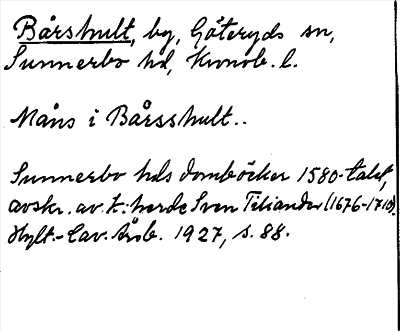 Bårshult, by, Göteryds sn,
Sunnerbo hd, Kronob. l.
Måns i Bårsshult..
Sunnerbo hds domböcker 1580-talet,
avskr. av k:herde Sven Tiliander (1676-1710).
Hylt.-Cav. Årsb. 1927, s. 88.